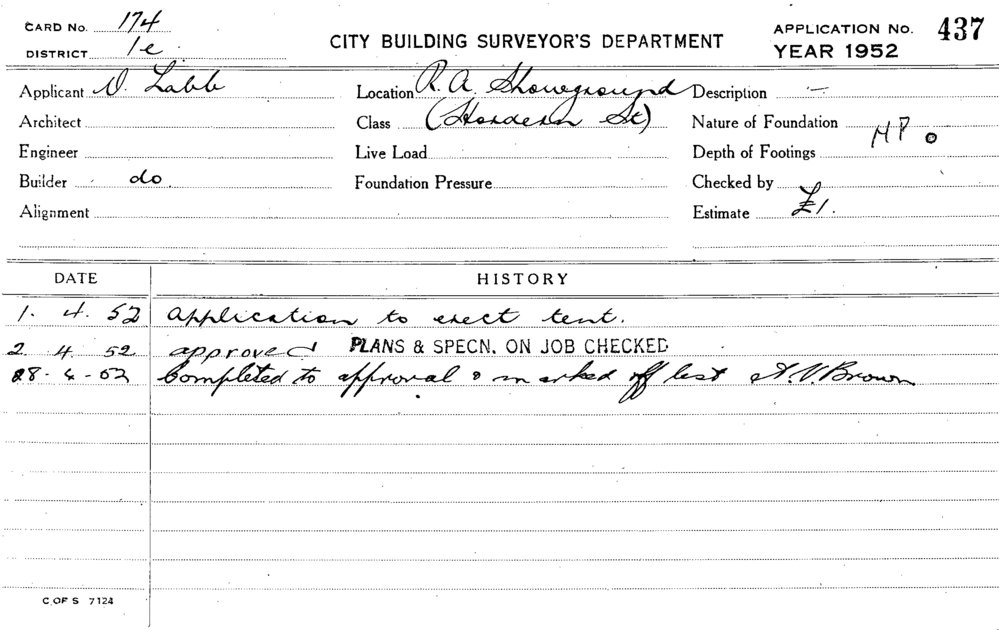 CARD No. 174
DISTRICT 1e
CITY BUILDING SURVEYOR'S DEPARTMENT
APPLICATION No. 437
YEAR 1952
Applicant Labb Location R. A. Showground Description —
Architect Class (Hordern St) Nature of Foundation
Engineer Live Load Depth of Footings
Builder do Foundation Pressure Checked by
Alignment Estimate £1.
DATE HISTORY
1. 4. 52 application to erect tent.
2. 4. 52 approved PLANS & SPECN. ON JOB CHECKED
28-4-52 Completed to approval & marked off list Brown
C OF S 7124